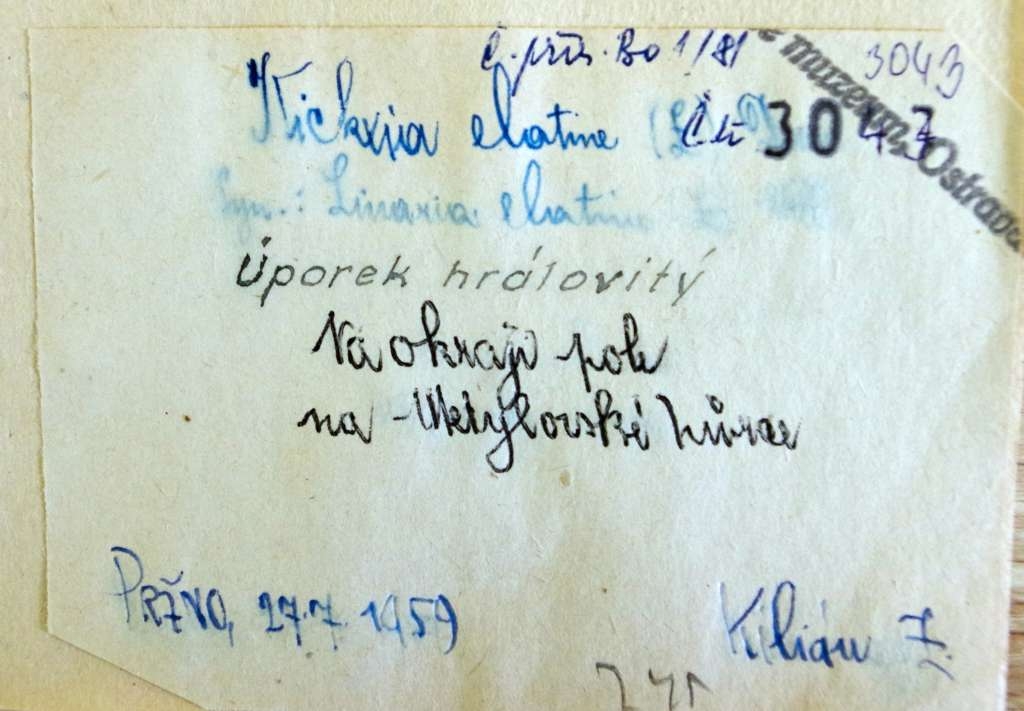 č. přís. Bo 1/81
3043
Kickxia elatine (L.)
Čís 3043
muzeum, Ostrava
Syn.: Linaria elatine
Úporek hrálovitý
Na okraji pole
na Metylovské hůrce
Pržno, 27.7. 1959
Kilián Z.